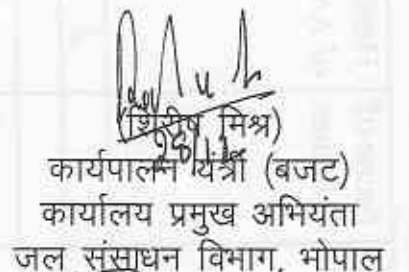 (शिरीष मिश्र)
कार्यपालन यंत्री (बजट)
कार्यालय प्रमुख अभियंता
जल संसाधन विभाग, भोपाल